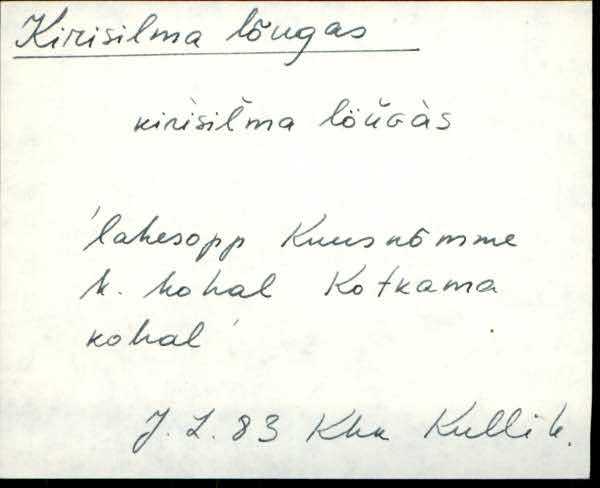 Kirisilma lõugas
kirìsilma löuGàs
'lahesopp Kuusnõmme
k. kohal Kotkama
kohal'
J. L. 83 Khk Kulli k.